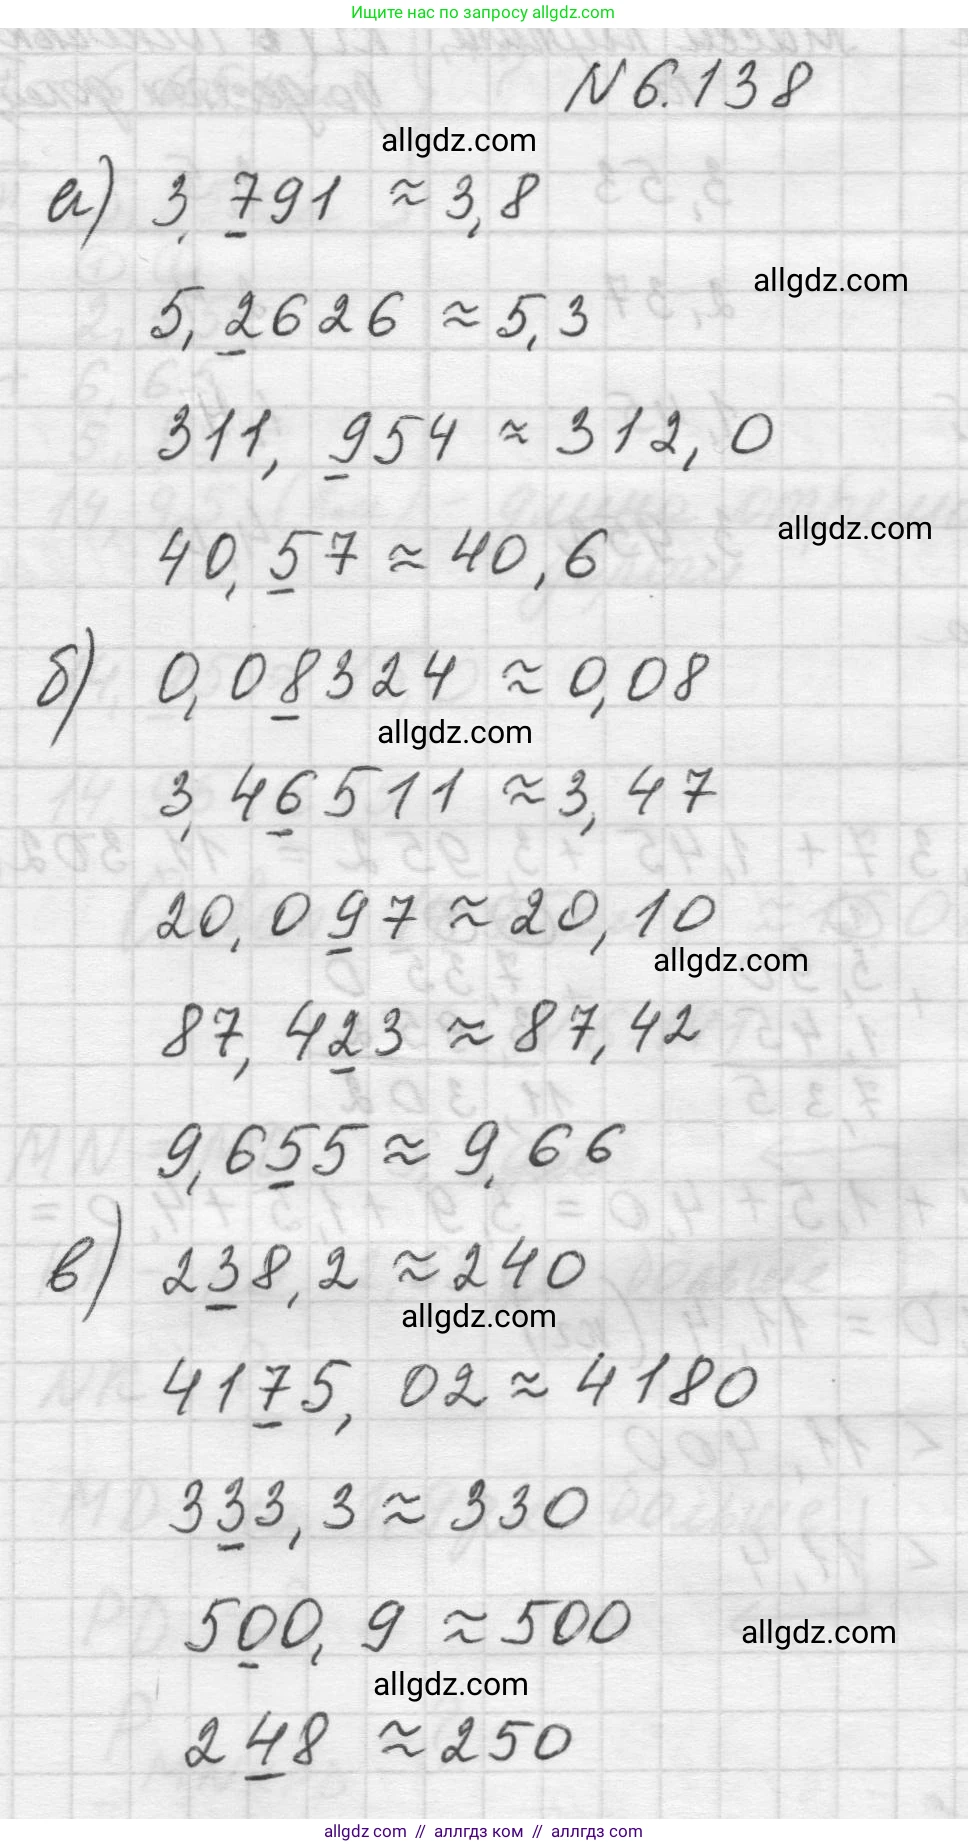 Ищите нас по запросу allgdz.com
N 6.138
allgdz.com
а) 3,791 ≈ 3,8
allgdz.com
5,2626 ≈ 5,3
311,954 ≈ 312,0
allgdz.com
40,57 ≈ 40,6
б) 0,08324 ≈ 0,08
allgdz.com
3,46511 ≈ 3,47
20,097 ≈ 20,10
allgdz.com
87,423 ≈ 87,42
9,655 ≈ 9,66
в) 238,2 ≈ 240
allgdz.com
4175,02 ≈ 4180
333,3 ≈ 330
500,9 ≈ 500
allgdz.com
allgdz.com
248 ≈ 250
allgdz.com // аллгдз ком // allgdz.com